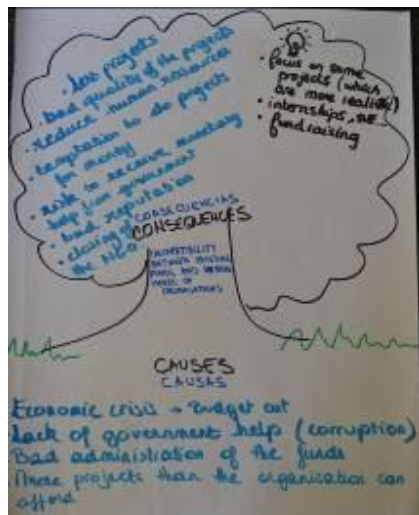 • less projects
• bad quality of the projects
• reduce human resources
• temptation to do projects
for money
• risk to receive monetary
help from government
• bad reputation
• closing of
the NGO
• focus on some
projects (which
are more realistic)
• internships,
• fundraising
CONSEQUENCIAS
CONSEQUENCES
BETWEEN
AND
ORGANISATIONS
CAUSES
CAUSAS
Economic crisis → Budget cut
Lack of government help (corruption)
Bad administration of the funds
More projects than the organisation can
afford